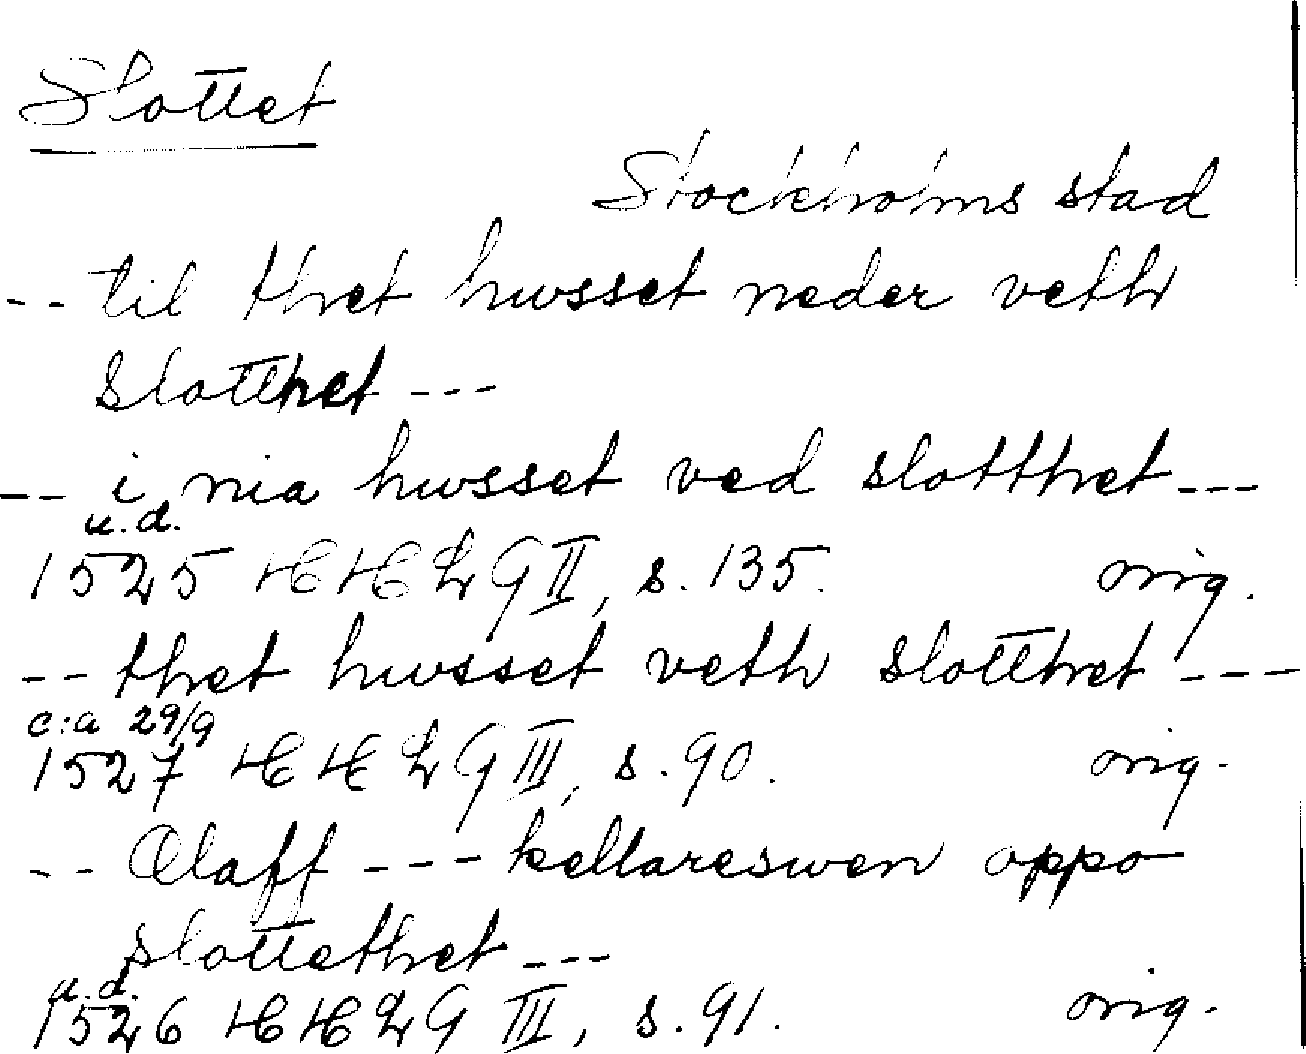 Slottet
Stockholms stad
-- til thet husset neder veth
slotthet ---
-- i nia husset ved slotthet ---
u.d.
1525 HH L G II, s. 135. orig.
-- thet husset veth slotthet ---
c:a 29/9
1527 HH L G III, s. 90. orig.
-- Olaff --- kellareswen oppo
slottethet ---
u.d.
1526 HH L G III, s. 91. orig.